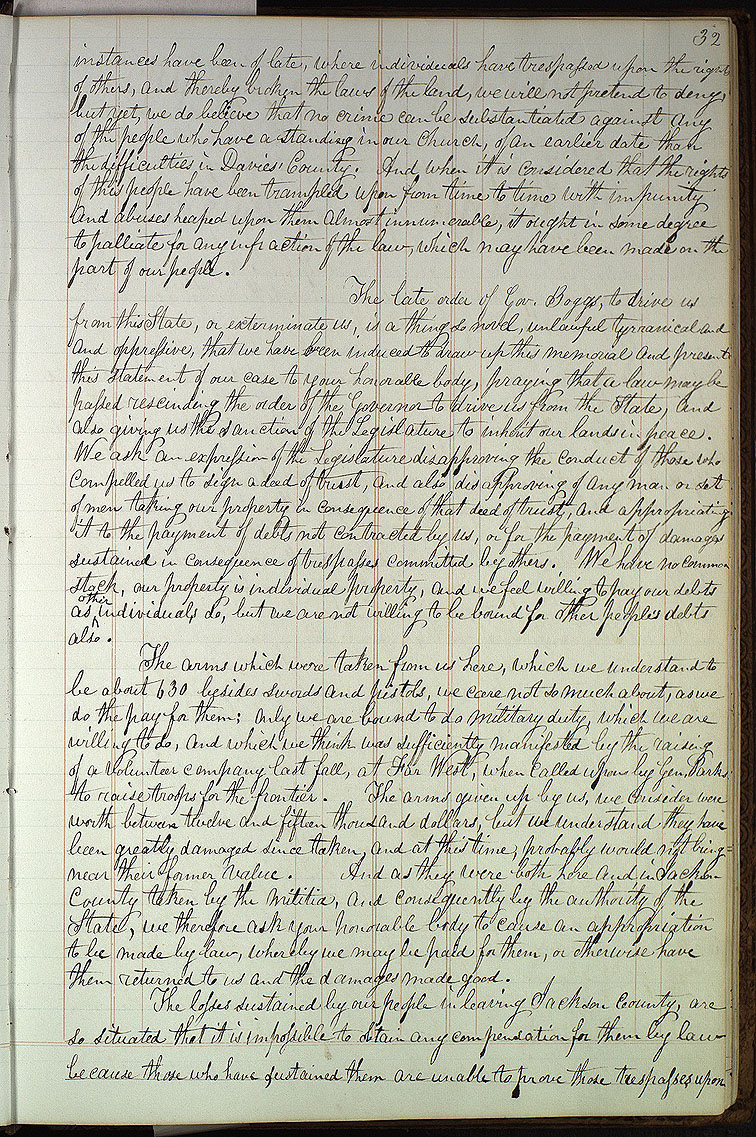 32
instances have been of late, where individuals have trespassed upon the rights
of others, and thereby broken the laws of the land, we will not pretend to deny,
but yet, we do believe that no crime can be substantiated against any
of the people who have a standing in our church, of an earlier date than
the difficulties in Davies' County. And, when it is considered that the rights
of this people have been trampled upon from time to time with impunity
and abuses heaped upon them almost innumerable, it ought in some degree
to palliate for any infraction of the law, which may have been made on the
part of our people.
The late order of Gov. Boggs, to drive us
from this State, or exterminate us, is a thing so novel, unlawful tyrranical and
and oppressive, that we have been induced to draw up this memorial and present
this statement of our case to your honorable body, praying that a law may be
passed rescinding the order of the Governor to drive us from the State, and
also giving us the sanction of the Legislature to inherit our lands in peace.
We ask an expression of the Legislature disapproving the conduct of those who
compelled us to sign a deed of trust, and also disapproving of any man or set
of men taking our property in consequence of that deed of trust, and appropriating
it to the payment of debts not contracted by us, or for the payment of damages
sustained in consequence of trespasses committed by others. We have no common
stock, our property is individual property, and we feel willing to pay our debts
as other individuals do, but we are not willing to be bound for other people's debts
also.
The arms which were taken from us here, which we understand to
be about 630 besides swords and pistols, we care not so much about, as we
do the pay for them; only we are bound to do military duty, which we are
willing to do, and which we think was sufficiently manifested by the raising
of a volunteer company last fall, at Far West, when called upon by Gen. Parks
to raise troops for the frontier. The arms given up by us, we consider were
worth between twelve and fifteen thousand dollars, but we understand they have
been greatly damaged since taken, and at this time, probably would not bring
near their former value. And as they were both here and in Jackson
County taken by the militia, and consequently by the authority of the
State, we therefore ask your honorable body to cause an appropriation
to be made by law, whereby we may be paid for them, or otherwise have
them returned to us and the damages made good.
The losses sustained by our people in leaving Jackson County, are
so situated that it is impossible to obtain any compensation for them by law
because those who have sustained them are unable to prove those trespasses upon